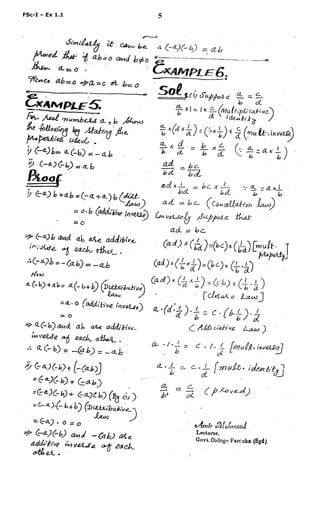 FSc-I - Ex 1.1
5
Similarly it can be
proved that if ab=0 and b≠0
then a = 0.
Hence ab=0 ⇒ a=0 or b=0
EXAMPLE 5.
For real numbers a, b show
the following by stating the
properties used.
i) (-a)b = a(-b) = -ab
ii) (-a)(-b) = ab
Proof
i) (-a)b+ab=(-a+a)b (dist. Law)
= 0·b (additive Inverse)
= 0
⇒ (-a)b and ab are additive
inverse of each other.
∴ (-a)b = -(ab) = -ab
Now
a(-b)+ab = a(-b+b) (Distributive Law)
= a·0 (additive inverse)
= 0
⇒ a(-b) and ab are additive
inverse of each other.
∴ a(-b) = -(ab) = -ab
ii) (-a)(-b)+[-(ab)]
= (-a)(-b) + (-ab)
= (-a)(-b) + (-a)(b) (By (i))
= (-a)(-b+b) (Distributive Law)
= (-a)·0 = 0
⇒ (-a)(-b) and -(ab) are
additive inverse of each
other.
∴ (-a)(-b) = ab
EXAMPLE 6.
Sol: i) Suppose a/b = c/d
a/b × 1 = 1 × c/d (multiplicative identity)
a/b × (d × 1/d) = (b × 1/b) × c/d (mult. inverse)
a/b × d/d = b/b × c/d (∵ a/b = a × 1/b)
ad/bd = bc/bd
ad × 1/bd = bc × 1/bd ∵ a/b = a × 1/b
ad = bc (Cancellation law)
Conversely suppose that
ad = bc
(ad)×(1/bd)=(bc)×(1/bd) [mult. property]
(ad)×(1/b × 1/d)=(bc)×(1/b · 1/d)
(ad)×(1/d × 1/b) = (cb) × (1/b · 1/d)
[closure Law]
a·(d·1/d)·1/b = c·(b·1/b)·1/d
(Associative Law)
a·1·1/b = c·1·1/d [mult. inverse]
a·1/b = c·1/d [mult. identity]
a/b = c/d (proved)
Amir Mahmood
Lecturer,
Govt. College Farooka (Sgd)